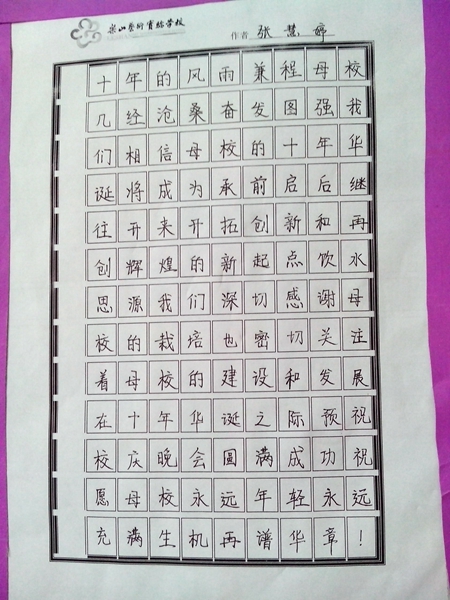 乐山艺术实验学校
作者 张慧婷
十年的风雨兼程母校
几经沧桑奋发图强我
们相信母校的十年华
诞将成为承前启后继
往开来开拓创新和再
创辉煌的新起点饮水
思源我们深切感谢母
校的栽培也密切关注
着母校的建设和发展
在十年华诞之际预祝
校庆晚会圆满成功祝
愿母校永远年轻永远
充满生机再谱华章！